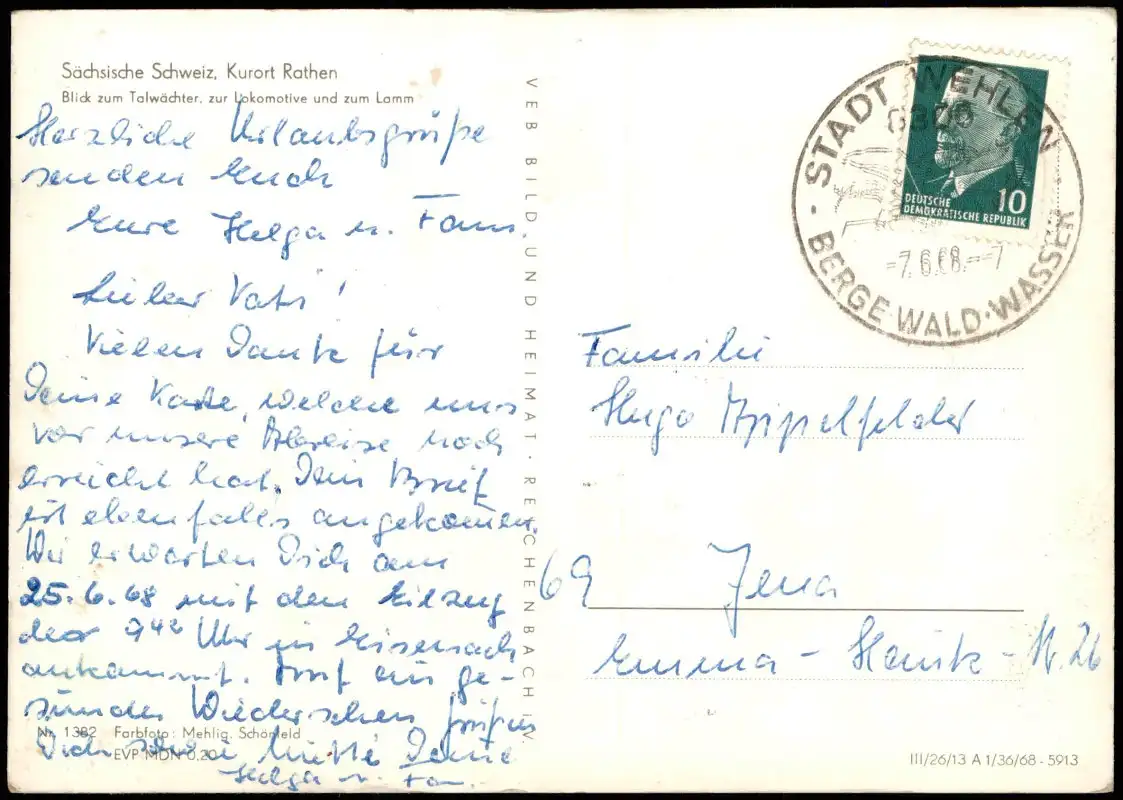 Sächsische Schweiz, Kurort Rathen
Blick zum Talwächter, zur Lokomotive und zum Lamm
Herzliche Urlaubsgrüße
senden Euch
Eure Helga u. Fam.
Lieber Vati!
Vielen Dank für
Deine Karte, welche uns
vor unsere Abreise noch
erreicht hat. Dein Brief
ist ebenfalls angekommen.
Wir erwarten Dich am
25.6.68 mit dem Eilzug
der 9⁴² Uhr in Eisenach
ankommt. Auf ein ge-
sundes Wiedersehen grüßen
Dich sowie Mutti Deine
Helga u. Fam.
Nr. 1382 Farbfoto: Mehlig, Schönfeld
EVP MDN 0,20
VEB BILD UND HEIMAT · REICHENBACH I. V.
STADT WEHLEN
8300
BERGE · WALD · WASSER
-7.6.68.--7
10
DEUTSCHE
DEMOKRATISCHE REPUBLIK
Familie
Hugo
69 Jena
Emma-Heintz-Str. 26
III/26/13 A 1/36/68 - 5913